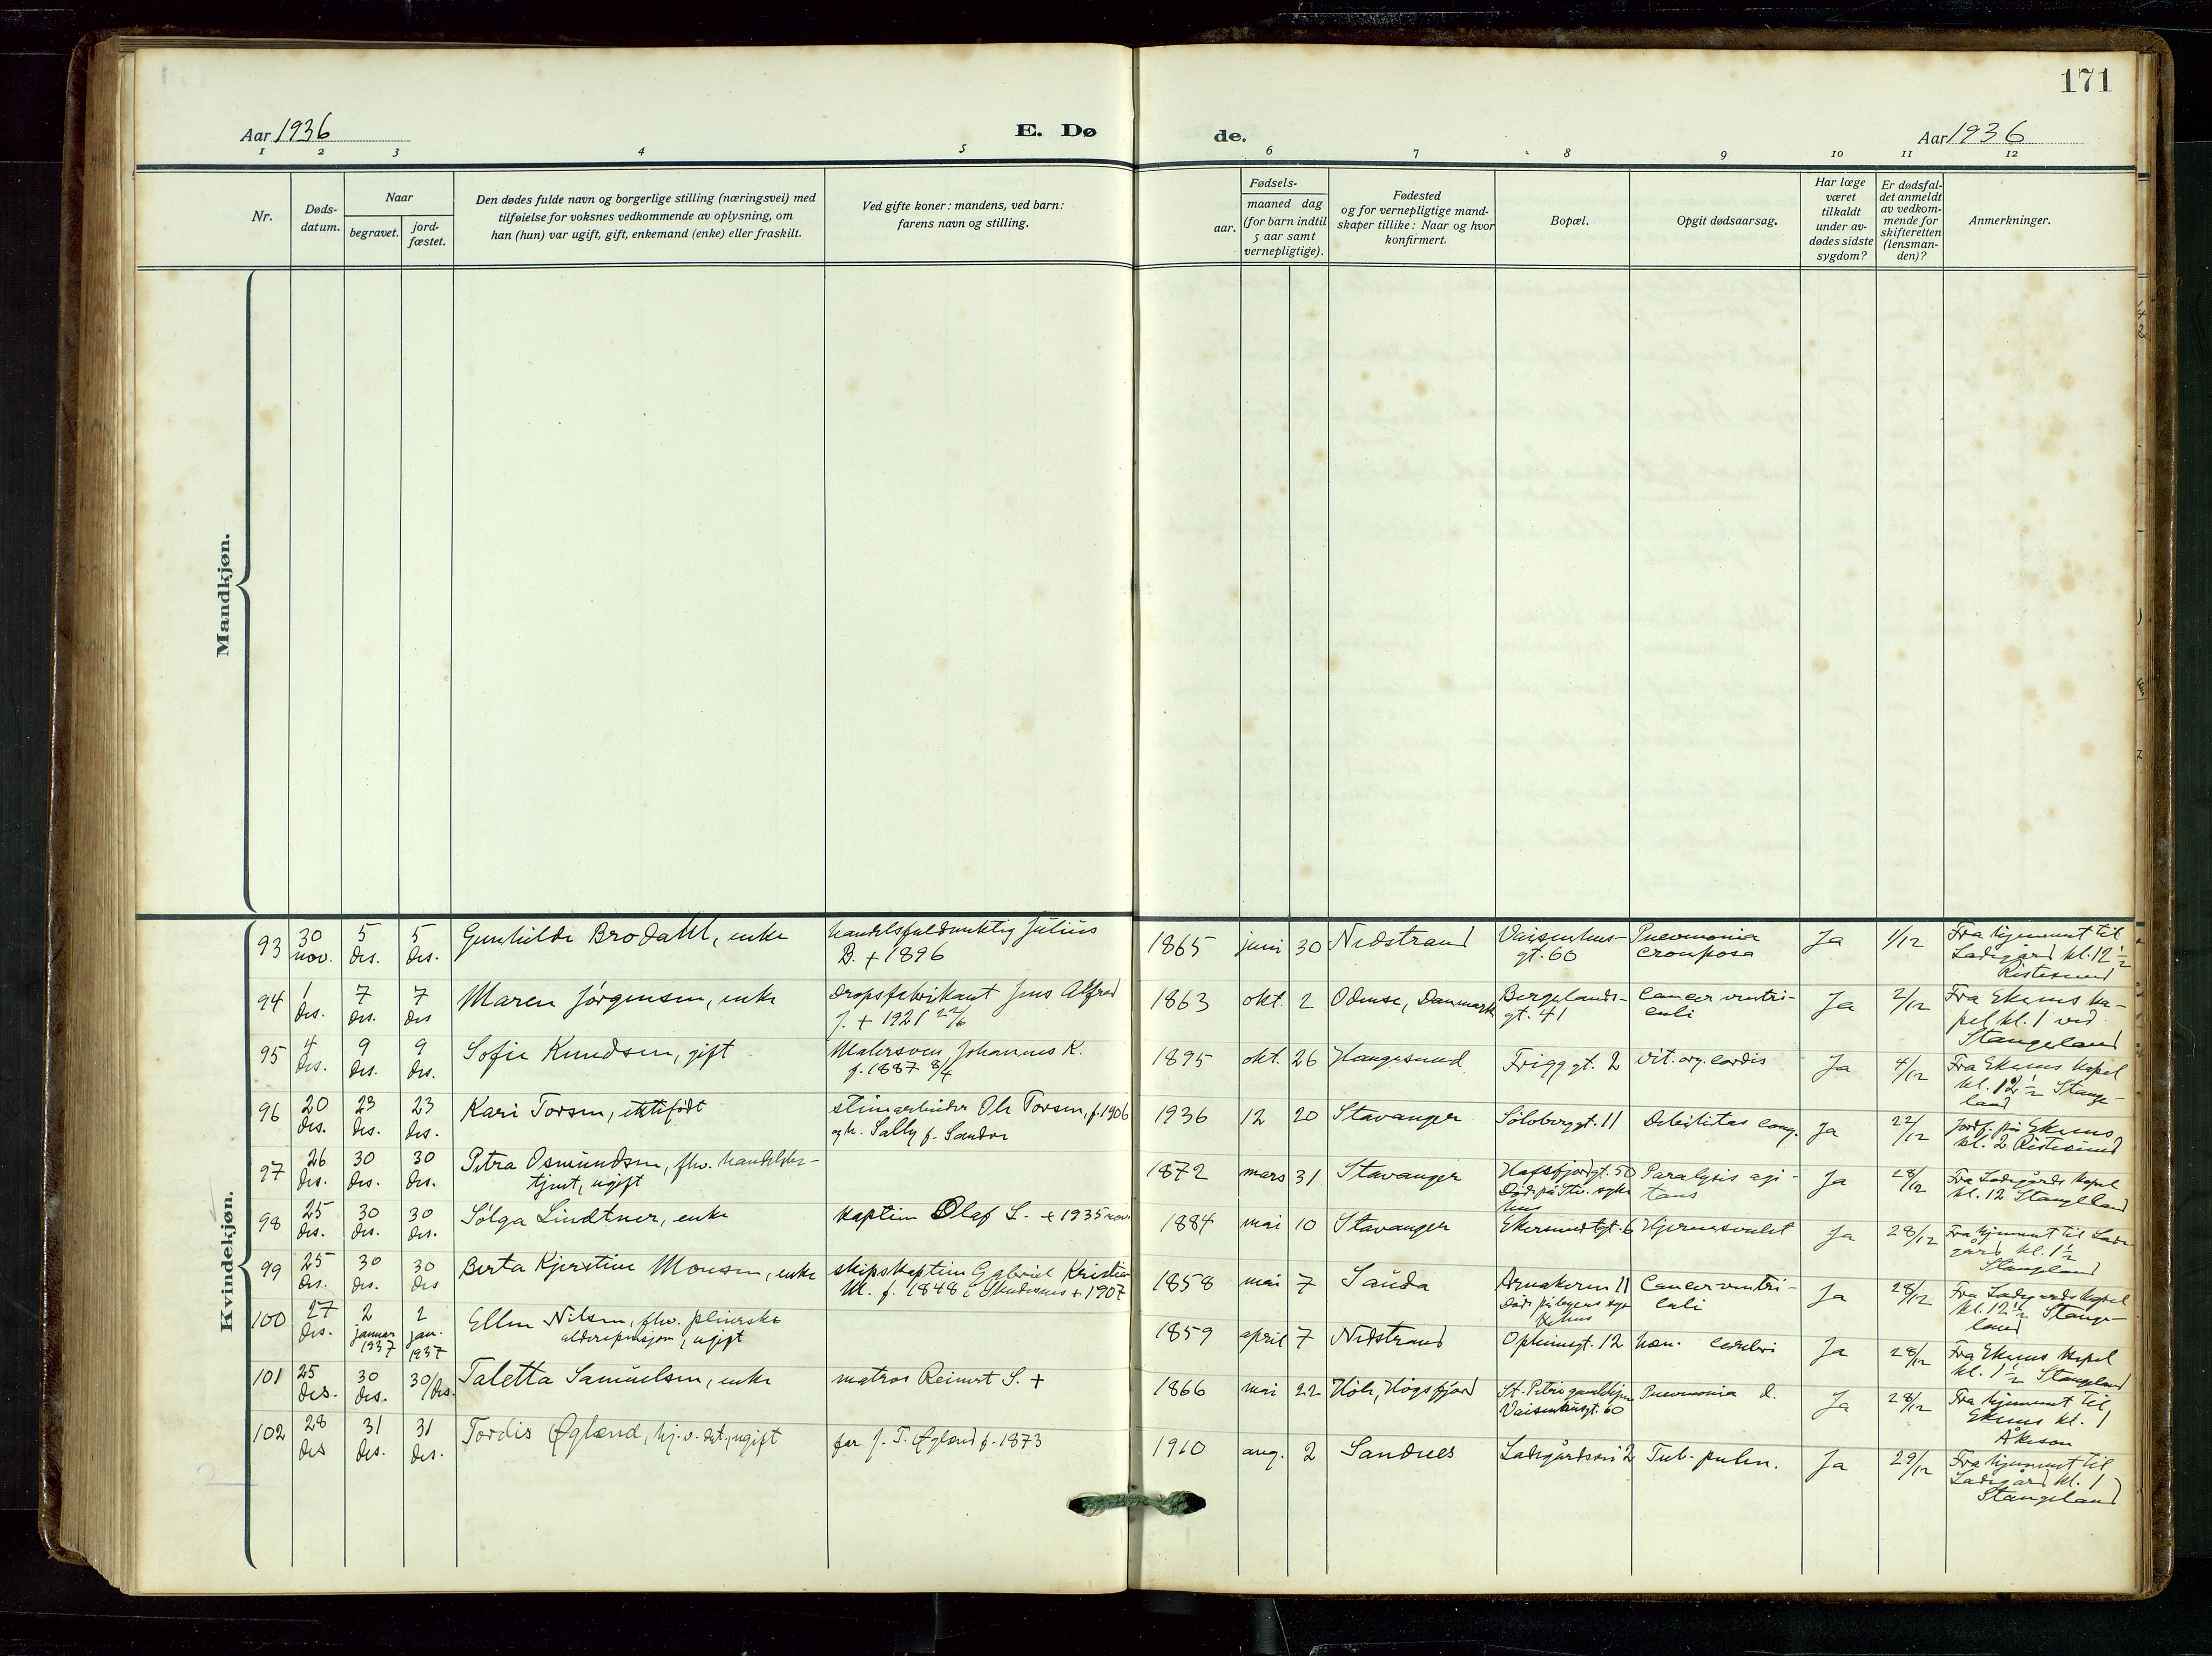 171
Aar 1936
E. Dø
de.
Aar 1936
1 2 3 4 5 6 7 8 9 10 11 12
Nr.
Døds-
datum.
Naar
begravet.
jord-
fæstet.
Den dødes fulde navn og borgerlige stilling (næringsvei) med
tilføielse for voksnes vedkommende av oplysning, om
han (hun) var ugift, gift, enkemand (enke) eller fraskilt.
Ved gifte koner: mandens, ved barn:
farens navn og stilling.
Fødsels-
aar.
maaned dag
(for barn indtil
5 aar samt
vernepligtige).
Fødested
og for vernepligtige mand-
skaper tillike: Naar og hvor
konfirmert.
Bopæl.
Opgit dødsaarsag.
Har læge
været
tilkaldt
under av-
dødes sidste
sygdom?
Er dødsfal-
det anmeldt
av vedkom-
mende for
skifteretten
(lensman-
den)?
Anmerkninger.
Mandkjøn.
Kvindekjøn.
93 30 nov. 5 des. 5 des. Gunhilde Brodahl, enke
handelsfuldmektig Julius
B. + 1896
1865 juni 30 Nedstrand
Vaisenhus-
gt. 60
Pneumonia
crouposa
Ja 1/12
Fra hjemmet til
Ladegård kl. 12 ½
Ristesund
94 1 des. 7 des. 7 des Maren Jørgensen, enke
dropsfabrikant Jens Alfred
J. + 1921 22/6
1863 okt. 2 Odense, Danmark
Bergelands-
gt. 41
Cancer ventri-
culi
Ja 2/12
Fra Ekenes ka-
pel kl. 1 ved
Stangeland
95 4 des. 9 des. 9 des. Sofie Knudsen, gift
Malersven Johannes K.
f. 1887 8/4
1895 okt. 26 Haugesund
Frigg gt. 2
Vit. org. cordis
Ja 4/12
Fra Ekenes kapel
kl. 12 ½ Stange-
land
96 20 des. 23 des. 23 des. Kari Torsen, ektefødt
Ole Torsen, f. 1906
og h. Sally f. Sandve
1936 12 20 Stavanger
Sølvberggt. 11
Debilitas cong.
Ja 22/12
Jordf. på Ekenes
kl. 2 Ristesund
97 26 des. 30 des. 30 des. Petra Osmundsen, fhv. handelsbe-
tjent, ugift
1872 mars 31 Stavanger
Hafrsfjordgt. 50
Døde på Stv. syke
hus
Paralysis agi-
tans
Ja 28/12
Fra Ladegårds kapel
kl. 12 Stangeland
98 25 des. 30 des. 30 des. Solga Lindtner, enke
kaptein Olaf L. + 1935 nov.
1884 mai 10 Stavanger
Ekersundgt. 6
Hjernesvulst
Ja 28/12
Fra hjemmet til Lade-
gård kl. 1 ½
Stangeland
99 25 des. 30 des. 30 des Berta Kjerstine Monsen, enke
skipskaptein Gabriel Kristian
M. f. 1848 i Skudesnes + 1907
1858 mai 7 Sauda
11
Døde på byens syke
hus
Cancer ventri-
culi
Ja 28/12
Fra Ladegårds kapel
kl. 12 ½ Stange-
land
100 27 des. 2 januar 1937 2 jan. 1937 Ellen Nilsen, fhv. pleierske
alderspensjon, ugift
1859 april 7 Nedstrand
Opheimsgt. 12
hæm. cerebri
Ja 28/12
Fra Ekenes kapel
kl. 1 ½ Stangeland
101 25 des. 30 des. 30/des. Taletta Samuelsen, enke
matros Reinert S. +
1866 mai 22 Høle, Høgsfjord
St. Petri gamlehjem
Vaisenhusgt. 60
Pneumonia d.
Ja 28/12
Fra hjemmet til
Ekenes kl. 1
Åkeson
102 28 des 31 des. 31 des. Tordis Øglænd, hj.v.det., ugift
far J. T. Øglænd f. 1873
1910 aug. 2 Sandnes
Ladegårdsvei 2
Tub. pulm.
Ja 29/12
Fra hjemmet til
Ladegård kl. 1
Stangeland